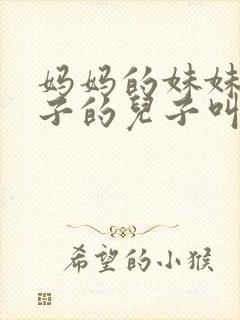 妈妈的妹妹
子的兒子叫
希望的小猴